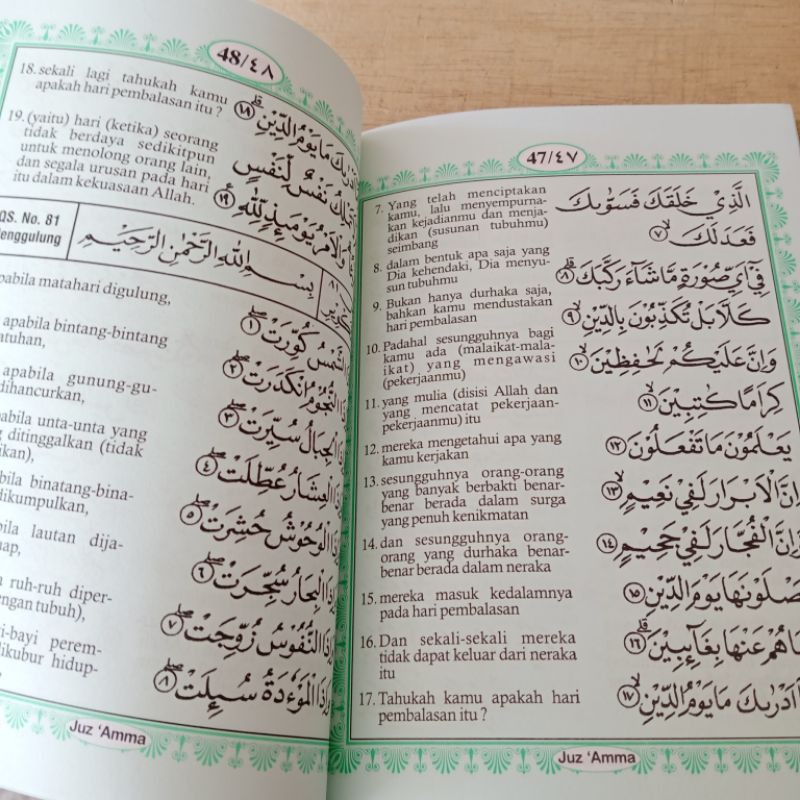 47/٤٧
7. Yang telah menciptakan
kamu, lalu menyempurna-
kan kejadianmu dan menja-
dikan (susunan tubuhmu)
seimbang
8. dalam bentuk apa saja yang
Dia kehendaki, Dia menyu-
sun tubuhmu
9. Bukan hanya durhaka saja,
bahkan kamu mendustakan
hari pembalasan
10. Padahal sesungguhnya bagi
kamu ada (malaikat-mala-
ikat) yang mengawasi
(pekerjaanmu)
11. yang mulia (disisi Allah dan
yang mencatat pekerjaan-
pekerjaanmu) itu
12. mereka mengetahui apa yang
kamu kerjakan
13. sesungguhnya orang-orang
yang banyak berbakti benar-
benar berada dalam surga
yang penuh kenikmatan
14. dan sesungguhnya orang-
orang yang durhaka benar-
benar berada dalam neraka
15. mereka masuk kedalamnya
pada hari pembalasan
16. Dan sekali-sekali mereka
tidak dapat keluar dari neraka
itu
17. Tahukah kamu apakah hari
pembalasan itu ?
الَّذِيْ خَلَقَكَ فَسَوّٰىكَ
فَعَدَلَكَ ۙ ٧
فِيْٓ اَيِّ صُوْرَةٍ مَّا شَاۤءَ رَكَّبَكَ ۗ ٨
كَلَّا بَلْ تُكَذِّبُوْنَ بِالدِّيْنِ ۙ ٩
وَاِنَّ عَلَيْكُمْ لَحٰفِظِيْنَ ۙ ١٠
كِرَامًا كٰتِبِيْنَ ۙ ١١
يَعْلَمُوْنَ مَا تَفْعَلُوْنَ ١٢
اِنَّ الْاَبْرَارَ لَفِيْ نَعِيْمٍ ۙ ١٣
وَاِنَّ الْفُجَّارَ لَفِيْ جَحِيْمٍ ١٤
صْلَوْنَهَا يَوْمَ الدِّيْنِ ١٥
هُمْ عَنْهَا بِغَاۤىِٕبِيْنَ ۗ ١٦
اَدْرٰىكَ مَا يَوْمُ الدِّيْنِ ۙ ١٧
Juz 'Amma
48/٤٨
18. sekali lagi tahukah kamu
apakah hari pembalasan itu ?
19. (yaitu) hari (ketika) seorang
tidak berdaya sedikitpun
untuk menolong orang lain,
dan segala urusan pada hari
itu dalam kekuasaan Allah.
مَا يَوْمُ الدِّيْنِ ۗ ١٨
نَفْسٌ لِّنَفْسٍ
وَالْاَمْرُ يَوْمَىِٕذٍ لِّلّٰهِ ١٩
QS. No. 81
enggulung
بِسْمِ اللهِ الرَّحْمٰنِ الرَّحِيْمِ
٨١
pabila matahari digulung,
apabila bintang-bintang
atuhan,
apabila gunung-gu-
dihancurkan,
pabila unta-unta yang
ditinggalkan (tidak
ikan),
bila binatang-bina-
dikumpulkan,
bila lautan dija-
ap,
ruh-ruh diper-
engan tubuh),
i-bayi perem-
likubur hidup-
الشَّمْسُ كُوِّرَتْ ۖ ١
النُّجُوْمُ انْكَدَرَتْ ۖ ٢
الْجِبَالُ سُيِّرَتْ ۖ ٣
الْعِشَارُ عُطِّلَتْ ۖ ٤
الْوُحُوْشُ حُشِرَتْ ۖ ٥
الْبِحَارُ سُجِّرَتْ ۖ ٦
النُّفُوْسُ زُوِّجَتْ ۖ ٧
وَاِذَا الْمَوْءٗدَةُ سُىِٕلَتْ ۖ ٨
Juz 'Amma